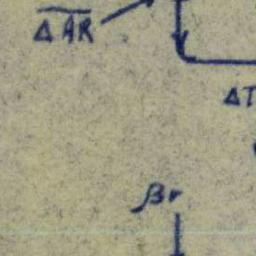 Δ AR
ΔT
βr